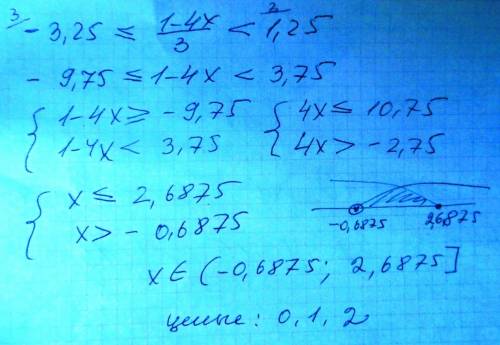 3/ - 3,25 ≤ (1-4x)/3 < 1,25
- 9,75 ≤ 1-4x < 3,75
{ 1-4x ≥ -9,75 { 4x ≤ 10,75
1-4x < 3,75 4x > -2,75
{ x ≤ 2,6875
x > - 0,6875
-0,6875 2,6875
x ∈ (-0,6875; 2,6875]
целые: 0, 1, 2